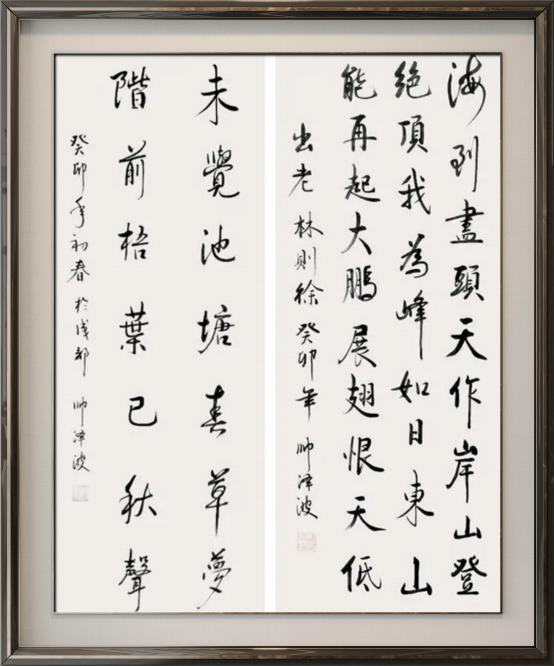 海到盡頭天作岸山登
絕頂我為峰如日東山
能再起大鵬展翅恨天低
出老 林則徐 癸卯年 帅泽波
未覺池塘春草夢
階前梧葉已秋聲
癸卯年初春 於成都 帅泽波